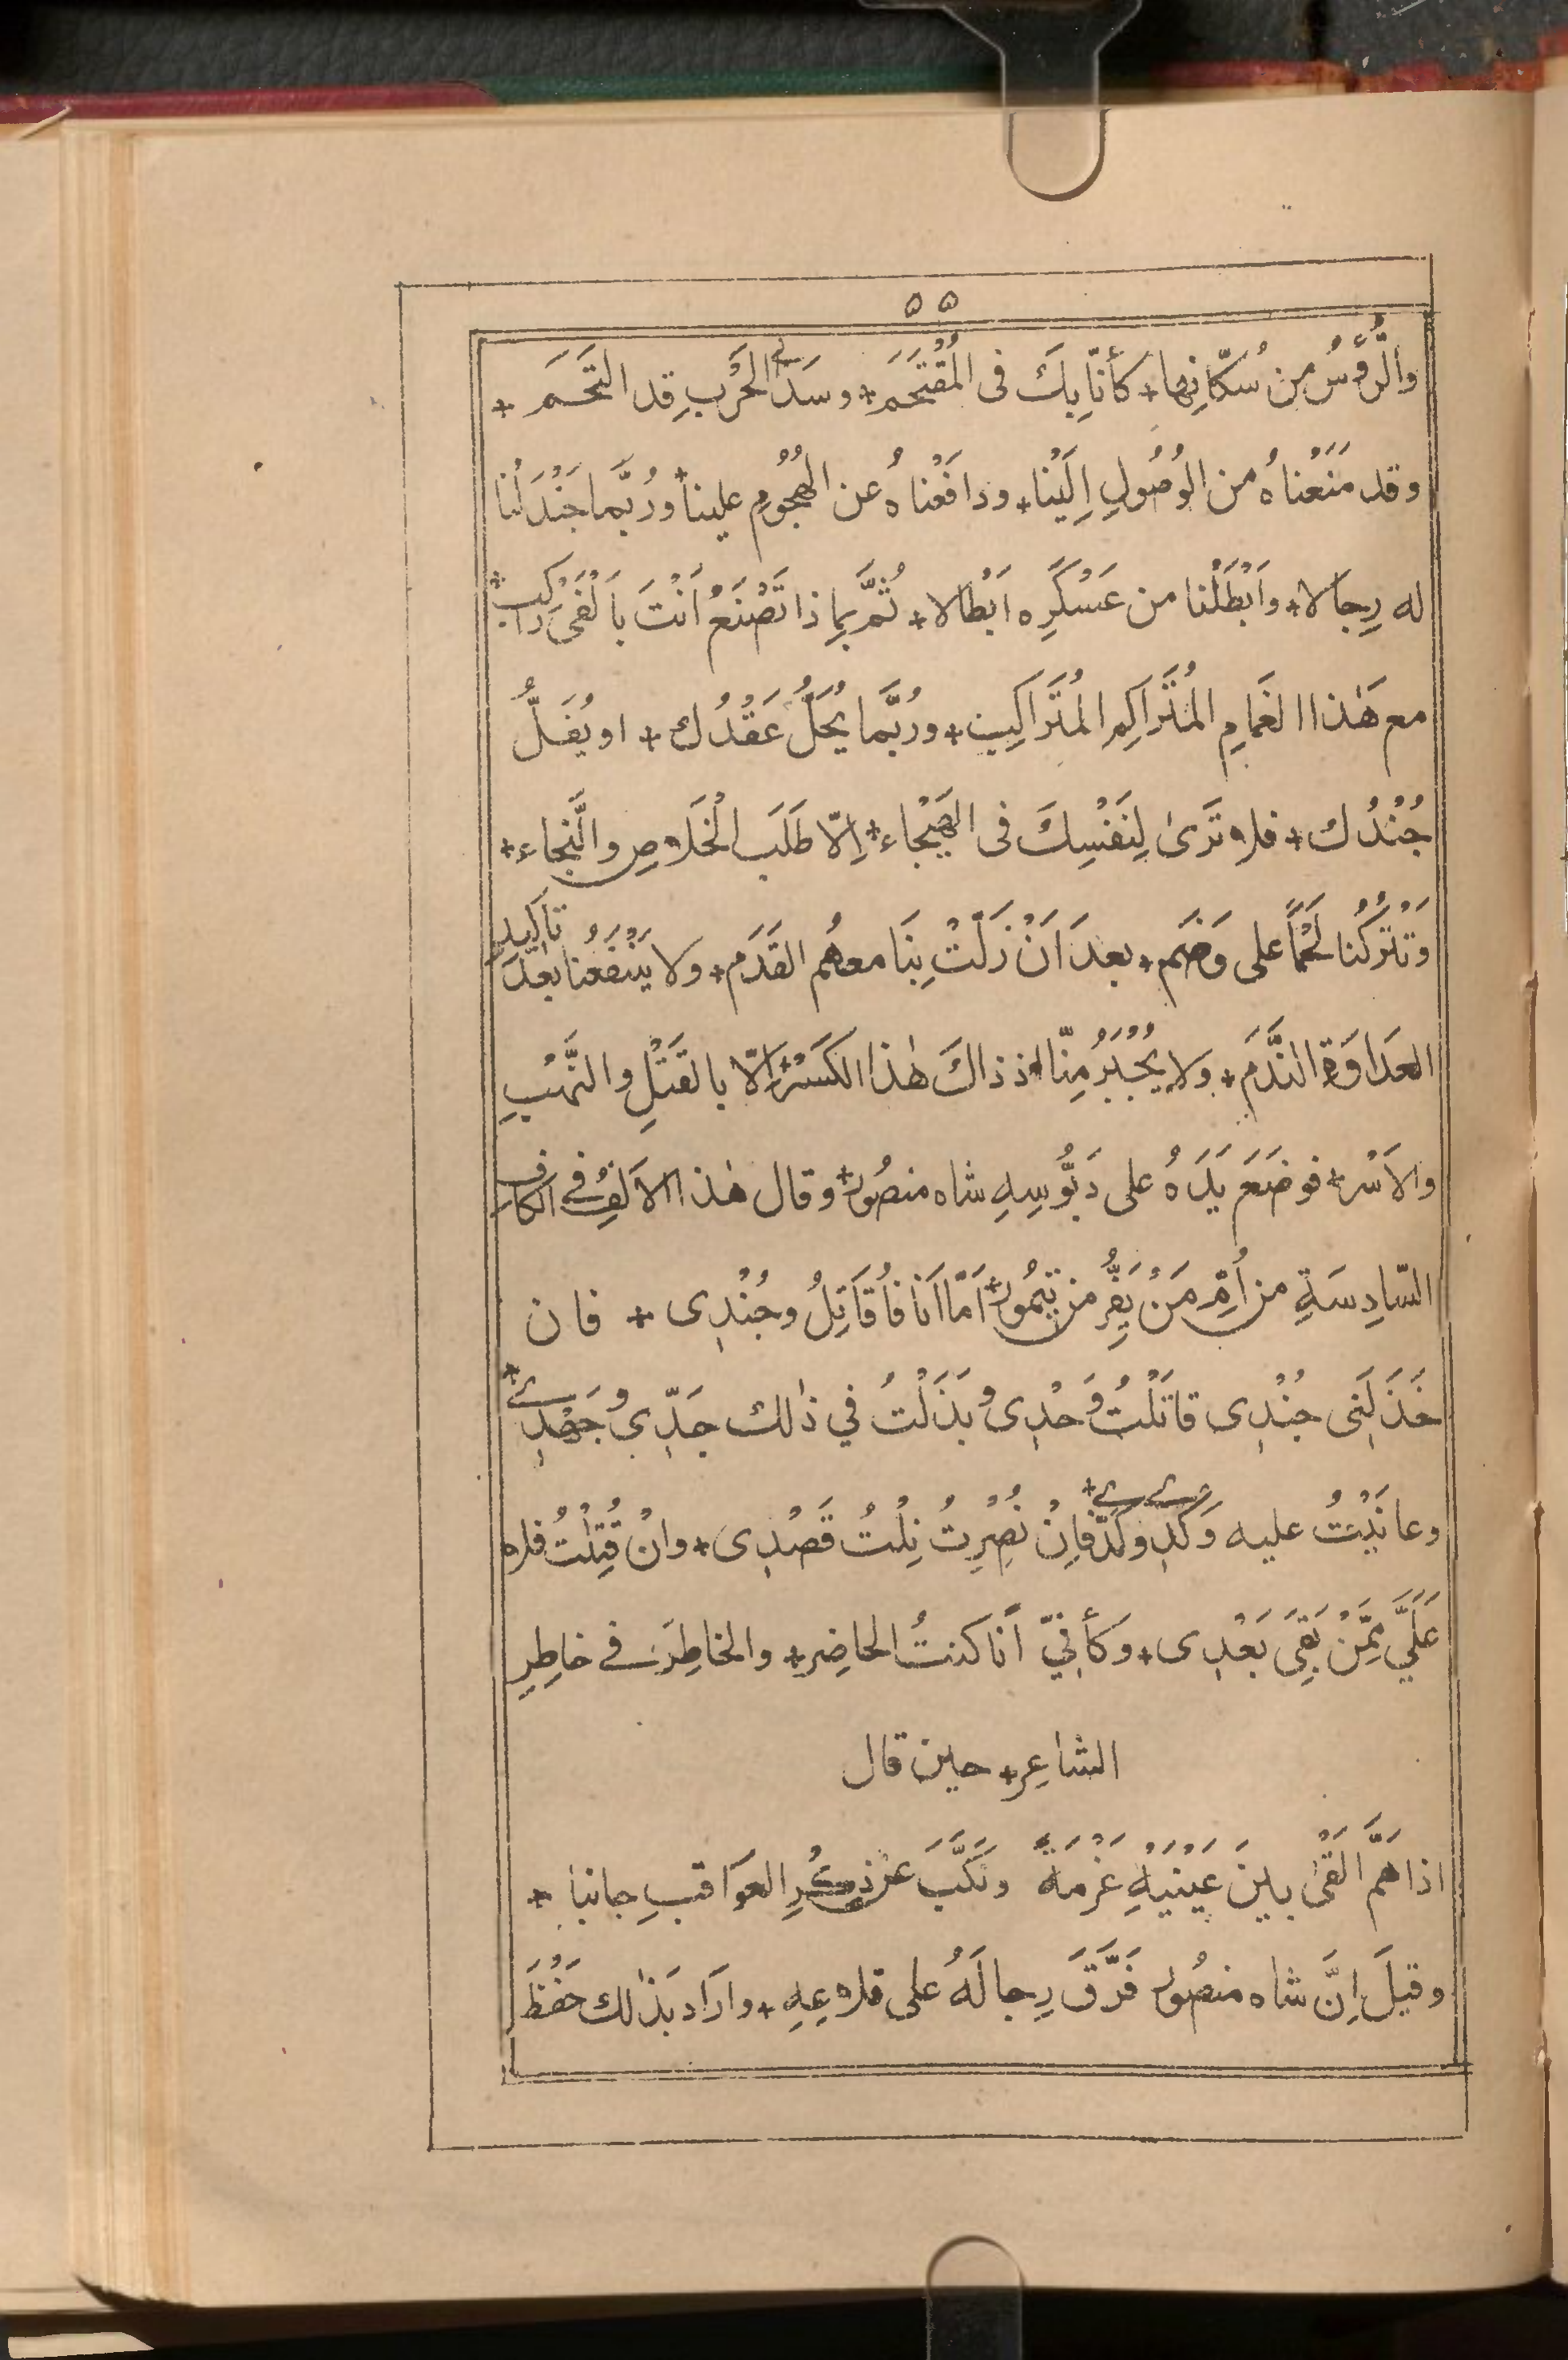 ٥٥
والرُّؤُسُ من سُكّانِها + كأنّا بِكَ فى المُقْتَحَم + وسَدَى الحَرْبِ قد التَحَم +
وقد مَنَعْناهُ من الوُصُولِ اِلَيْنا + ودافَعْناهُ عن الهُجُومِ علينا + ورُبَّما جَنْدَلْنا
له رِجالا + واَبْطَلْنا من عَسْكَرِه اَبْطالا + ثُمَّ بِماذا تَصْنَعُ اَنْتَ بِاَلْفَىْ راكب +
مع هٰذا الغَمامِ المُتَراكِمِ المُتَراكِب + ورُبَّما يُحَلُّ عَقْدُك + او يُفَلُّ
جُنْدُك + فلا تَرىٰ لِنَفْسِكَ فى الهَيْجاء + اِلّا طَلَبَ الخَلاصِ والنَّجاء +
وتَتْرُكُنا لَحْمًا على وَضَم + بعدَ اَنْ زَلَّتْ بِنَا معهُم القَدَم + ولا يَنْفَعُنا بعدَ تاكيدِ
العَداوَةِ النَّدَم + ولا يُجْبَرُ مِنّا اذ ذاكَ هٰذا الكَسْرُ اِلّا بالقَتْلِ والنَّهْبِ
والاَسْر + فوضَعَ يَدَهُ على دَبُّوسِهِ شاه منصُور + وقال هٰذا الاَلِفُ فى الكاف
السّادِسَةِ من اُمِّ مَنْ يَفِرُّ من تيمُور + اَمّا اَنَا فاُقاتِلُ وجُنْدِى + فان
خَذَلَنِى جُنْدِى قاتَلْتُ وَحْدِى وبَذَلْتُ في ذٰلك جَدِّي وجَهْدِى +
وعانَيْتُ عليه وَكْدِى وكَدِّى + فاِنْ نُصِرْتُ نِلْتُ قَصْدِى + وانْ قُتِلْتُ فلا
عَلَيَّ مِمَّنْ بَقِىَ بَعْدِى + وكأنّي اَنا كنتُ الحاضِر + والخاطِرَ فى خاطِرِ
الشاعِر + حين قال
اذا هَمَّ اَلْقىٰ بينَ عَيْنَيْهِ عَزْمَهُ ونَكَّبَ عن ذِكْرِ العَواقبِ جانبا +
وقيلَ اِنَّ شاه منصُور فَرَّقَ رِجالَهُ على قلاعِهِ + وارَاد بَذٰلك حَفْظَ